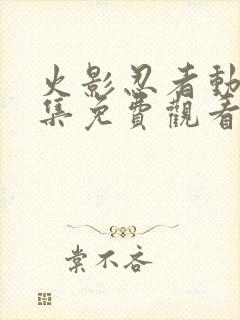 火影忍者動
集免費觀看
棠不吝